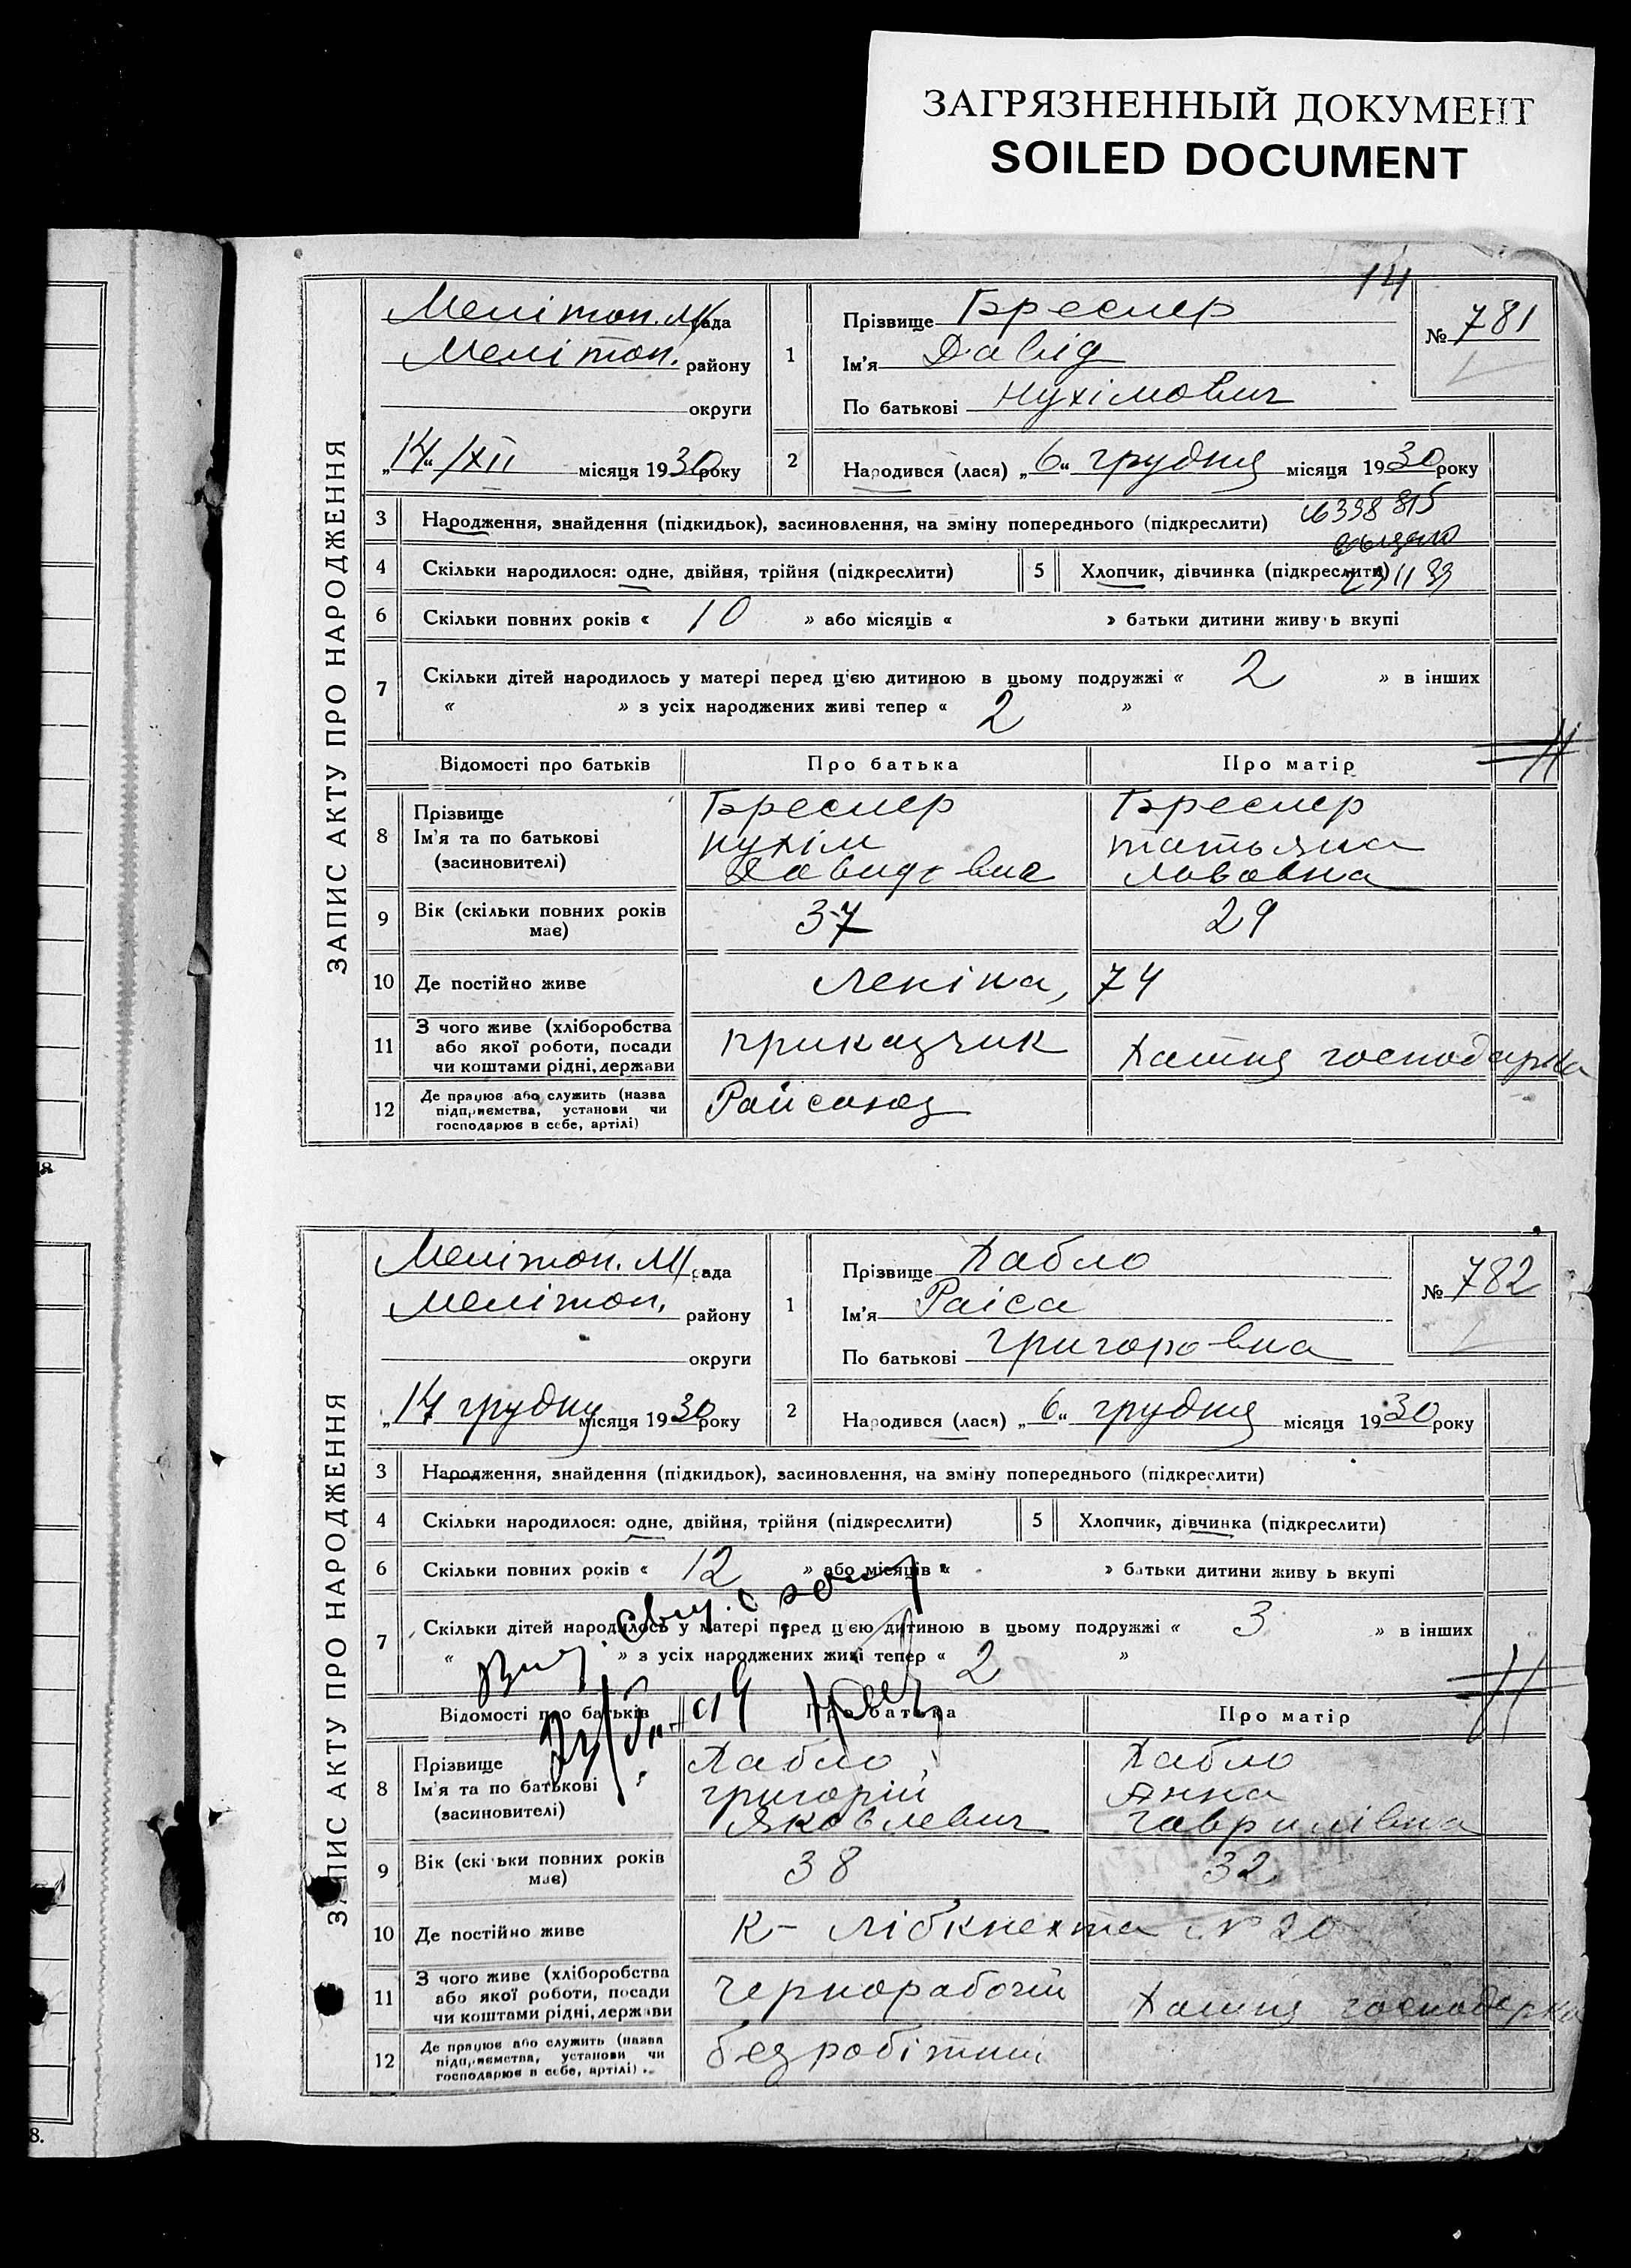 ЗАГРЯЗНЕННЫЙ ДОКУМЕНТ
SOILED DOCUMENT
14
ЗАПИС АКТУ ПРО НАРОДЖЕННЯ
Меліт­оп. М/рада
Мелітоп. району
округи
„14“ /XII місяця 1930 року
1
Прізвище Бреслер
Ім'я Давід
По батькові Нухімович
№ 781
2
Народився (лася) „6“ грудня місяця 1930 року
3 Народження, знайдення (підкидьок), засиновлення, на зміну попереднього (підкреслити)
4 Скільки народилося: одне, двійня, трійня (підкреслити)
5 Хлопчик, дівчинка (підкреслити)
6 Скільки повних років « 10 » або місяців « » батьки дитини живуть вкупі
7 Скільки дітей народилось у матері перед цією дитиною в цьому подружжі « 2 » в інших
« » з усіх народжених живі тепер « 2 »
Відомості про батьків Про батька Про матір
8 Прізвище Бреслер Бреслер
Ім'я та по батькові Нухім Татьяна
(засновителі)
9 Вік (скільки повних років має) 37 29
10 Де постійно живе Леніна, 74
11 З чого живе (хліборобства
або якої роботи, посади
чи коштами рідні, держави
приказчик Хатня господарка
12 Де працює або служить (назва
підприємства, установи чи
господарює в себе, артілі)
Райсоюз
ЗАПИС АКТУ ПРО НАРОДЖЕННЯ
Мелітоп. М/рада
Мелітоп. району
округи
„14 грудня місяця 1930 року
1
Прізвище Хабло
Ім'я Раіса
По батькові Григоровна
№ 782
2
Народився (лася) „6“ грудня місяця 1930 року
3 Народження, знайдення (підкидьок), засиновлення, на зміну попереднього (підкреслити)
4 Скільки народилося: одне, двійня, трійня (підкреслити)
5 Хлопчик, дівчинка (підкреслити)
6 Скільки повних років « 12 » або місяців « » батьки дитини живуть вкупі
7 Скільки дітей народилось у матері перед цією дитиною в цьому подружжі « 3 » в інших
« » з усіх народжених живі тепер « 2 »
Відомості про батьків Про батька Про матір
8 Прізвище Хабло Хабло
Ім'я та по батькові Григорій Анна
(засиновителі) Яковлевич Гаврилівна
9 Вік (скільки повних років має) 38 32
10 Де постійно живе К-Лібкнехта № 20
11 З чого живе (хліборобства
або якої роботи, посади
чи коштами рідні, держави
Чернорабочій Хатня господарка
12 Де працює або служить (назва
підприємства, установи чи
господарює в себе, артілі)
безробітний
8.